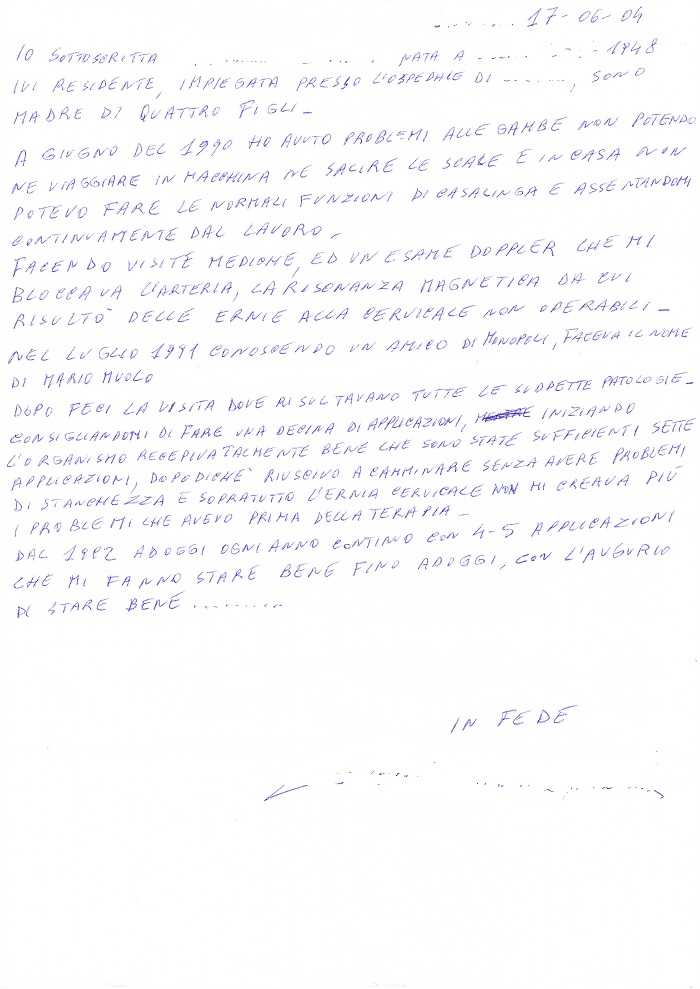 17-06-04
IO SOTTOSCRITTA NATA A 1948
IVI RESIDENTE, IMPIEGATA PRESSO L'OSPEDALE DI ........, SONO
MADRE DI QUATTRO FIGLI_
A GIUGNO DEL 1990 HO AVUTO PROBLEMI ALLE GAMBE NON POTENDO
NE VIAGGIARE IN MACCHINA NE SALIRE LE SCALE E IN CASA NON
POTEVO FARE LE NORMALI FUNZIONI DI CASALINGA E ASSENTANDOMI
CONTINUAMENTE DAL LAVORO_
FACENDO VISITE MEDICHE, ED UN ESAME DOPPLER CHE MI
BLOCCAVA L'ARTERIA, LA RISONANZA MAGNETICA DA CUI
RISULTÒ DELLE ERNIE ALLA CERVICALE NON OPERABILI_
NEL LUGLIO 1991 CONOSCENDO UN AMICO DI MONOPOLI, FACEVA IL NOME
DI MARIO MUOLO
DOPO FECI LA VISITA DOVE RISULTAVANO TUTTE LE SUDDETTE PATOLOGIE_
CONSIGLIANDOMI DI FARE UNA DECINA DI APPLICAZIONI, INIZIANDO
L'ORGANISMO RECEPIVA TALMENTE BENE CHE SONO STATE SUFFICIENTI SETTE
APPLICAZIONI, DOPODICHE' RIUSCIVO A CAMMINARE SENZA AVERE PROBLEMI
DI STANCHEZZA E SOPRATUTTO L'ERNIA CERVICALE NON MI CREAVA PIÙ
I PROBLEMI CHE AVEVO PRIMA DELLA TERAPIA_
DAL 1992 ADOGGI OGNI ANNO CONTINUO CON 4-5 APPLICAZIONI
CHE MI FANNO STARE BENE FINO ADOGGI, CON L'AUGURIO
DI STARE BENE ...........
IN FEDE